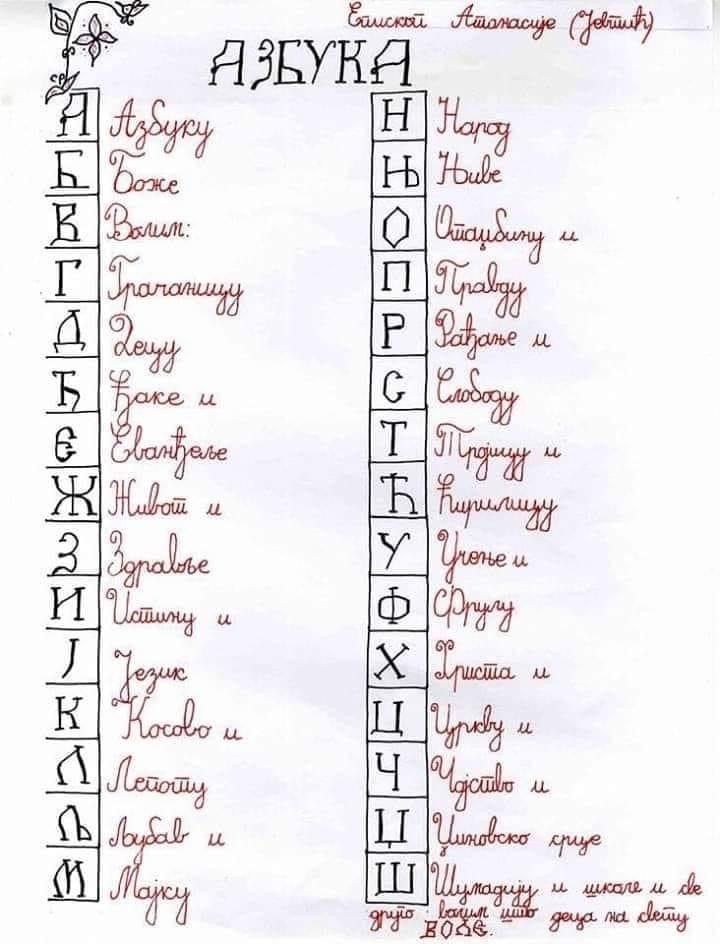 Епископ Атанасије (Јевтић)
АЗБУКА
А Азбуку
Б Боже
В Волим:
Г Грачаницу
Д Децу
Ђ Ђаке и
Е Еванђеље
Ж Живот и
З Здравље
И Истину и
Ј Језик
К Косово и
Л Лепоту
Љ Љубав и
М Мајку
Н Народ
Њ Њиве
О Отаџбину и
П Правду
Р Рађање и
С Слободу
Т Тројицу и
Ћ Ћирилицу
У Учење и
Ф Фрулу
Х Христа и
Ц Цркву и
Ч Чојство и
Џ Џиновско срце
Ш Шумадију и шкале и све
друго волим што деца на свету
ВОЛЕ.